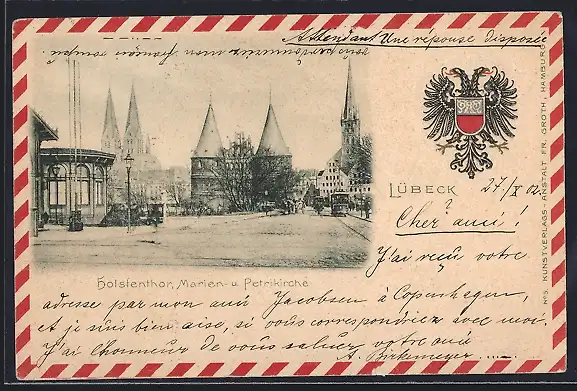 Attendant Une réponse disposée
LÜBECK
27/X 02
Cher ami!
J'ai reçu votre
Holstenthor, Marien- u Petrikirche
adresse par mon ami Jacobsen à Copenhagen,
et je suis bien aise, si vous correspondriez avec moi.
J'ai l'honneur de vous saluer votre ami
A. Birkemeyer
No 5. KUNSTVERLAGS-ANSTALT FR. GROTH, HAMBURG